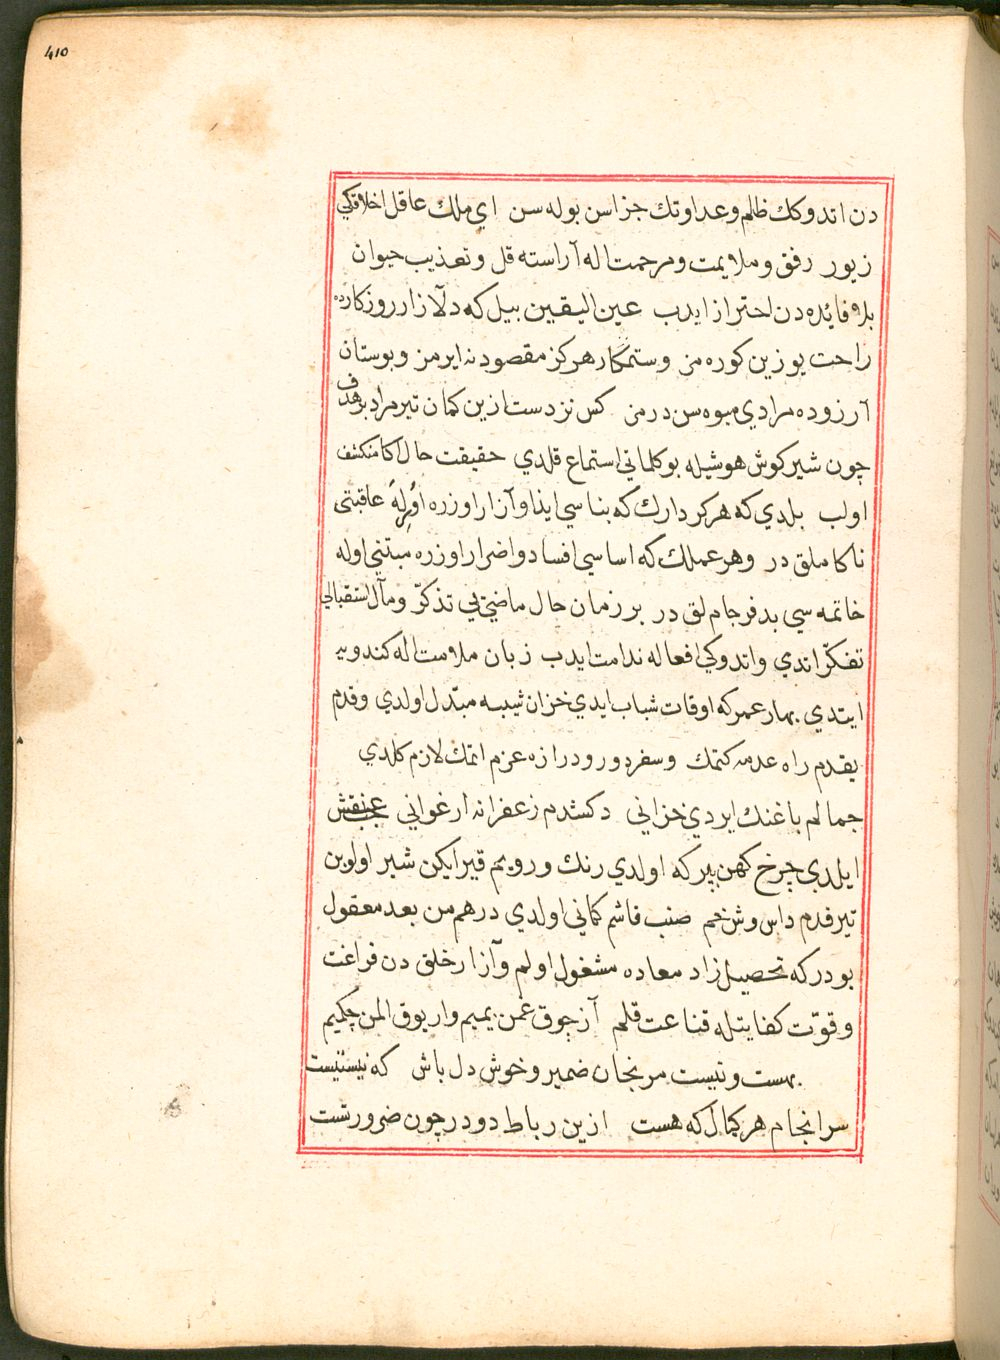 410
دن اندوكك ظالم وعداوتك جزاسن بوله سن اي ملك عاقل اخلاقكي
زيور رفق وملايمت ومرحمت اله آراسته قل وتعذيب حيوان
بلا فائده دن احتراز ايدب عين اليقين بيل كه دلازار روزكارده
راحت يوزين كوره مز وستمكار هركز مقصودنه ايرمز وبوستان
آرزوده مرادي ميوه سن درمز كس نزد دست ازين كمان تير مراد بر هدف
چون شير كوش هوشيله بو كلماتي استماع قلدي حقيقت حال اكا منكشف
اولب بلدي كه هر كردارك كه بناسي ايذا وآزار اوزره اوُلهُ عاقبتى
ناكاملق در وهر عملك كه اساسي افساد واضرار اوزره مبتني اوله
خاتمه سي بدفرجاملق در بر زمان حال ماضيي تذكّر ومآل استقبالي
تفكّر اندي واندوكي افعاله ندامت ايدب زبان ملامت اله كندويه
ايتدي بهار عمر كه اوقات شباب ايدي خزان شيبه مبدّل اولدي وقدم
بقدم راه عدمه كتمك وسفر دور ودرازه عزم اتمك لازم كلدي
جمالم باغنك ايردي خزاني دكشدم زعفرانه ارغواني عجب نقش
ايلدي چرخ كهن پير كه اولدي رنك ورويم قير ايكن شير اولوبن
تير قدم داس وش خم صنب قاشم كماني اولدي درهم من بعد معقول
بودر كه تحصيل زاد معاده مشغول اولم وآزار خلق دن فراغت
وقوّت كفايتله قناعت قلم آز چوق غمن يميم وار يوق المن چكيم
بهست ونيست مرنجان ضمير وخوش دل باش كه نيستيست
سرانجام هر كمال كه هست ازين رباط دودر چون ضرورتست